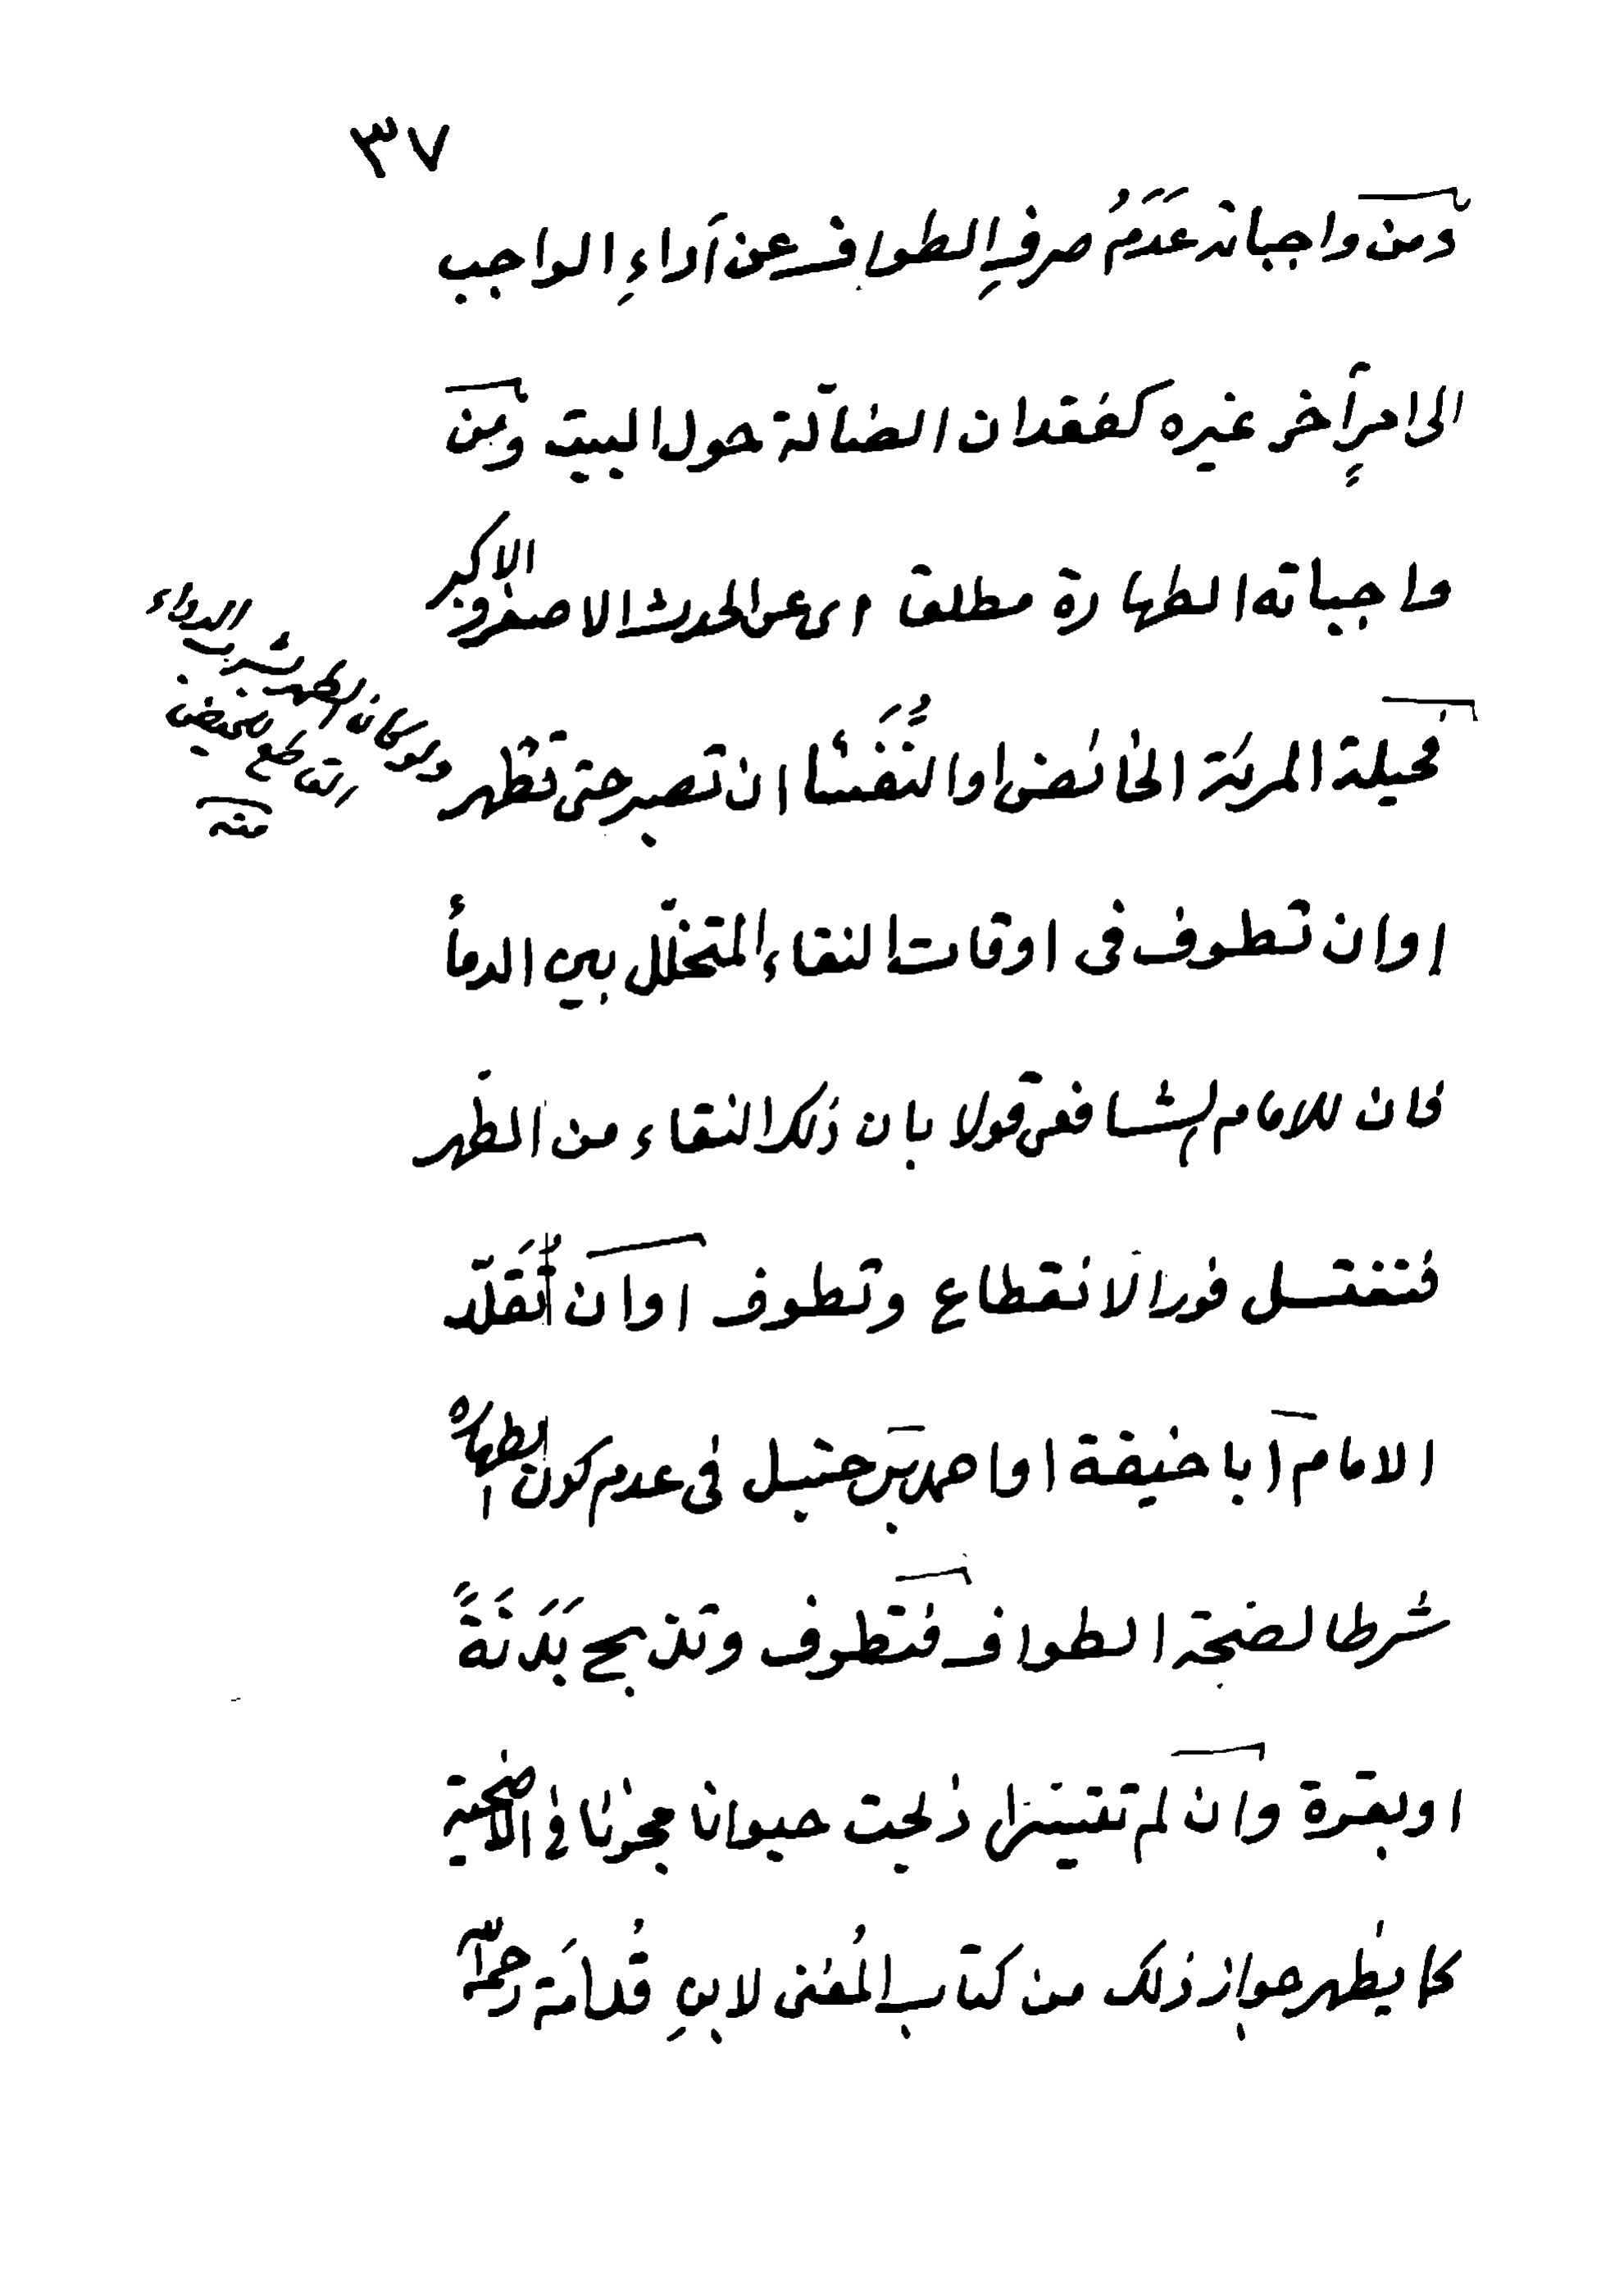 ٣٧
ومن واجباته عَدَمُ صرفِ الطواف عن أداءِ الواجب
الى امرٍ آخر غيره كفقدان الضالّة حول البيت ومن
واجباته الطهارة مطلقا اى عن الحدث الاصغر والاكبر
فحيلة المرئة الحائض او النُّفَسَا ان تصبر حتى تطهر
ولو كان الطهر بشرب الدواء
القاطع للحيض
منه
او ان تطوف فى اوقات النقاء المتخلّل بين الدمأ
فان للامام الشافعى قولا بان ذلك النقاء من الطهر
فتغتسل فور الانقطاع وتطوف او ان تُقَلّد
الامام ابا حنيفة او احمد بن حنبل فى عدم كون الطهارة
شرطا لصحة الطواف فتطوف وتذبح بَدَنَةً
او بقرة وان لم تتيسرا ذبحت حيوانا مجزئا فى الاضحية
كما يظهر جواز ذلك من كتاب المُغنى لابنِ قُدامَة رحمه الله